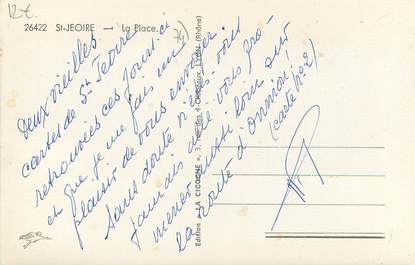 12€
26422 St-JEOIRE — La Place.
(74)
Deux vieilles
cartes de St Jeoire
retrouvées ces jours-ci
et que je me fais un
plaisir de vous envoyer.
Sans doute n'êtes-vous
jamais allé vous pro-
mener aussi loin sur
la route d'Onnion !
(carte no 2)
Edition « LA CICOGNE », 3, rue des 4-Chapeaux, LYON (Rhône)